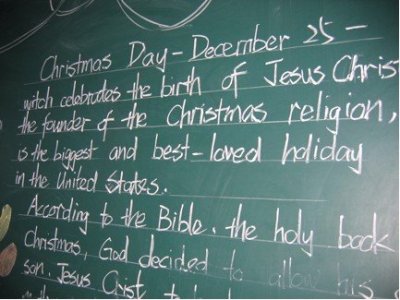 Christmas Day – December 25 –
witch celebrates the birth of Jesus Chris
the founder of the Christmas religion,
is the biggest and best-loved holiday
in the United States.
According to the Bible. the holy book
Christmas, God decided to allow his
son. Jesus Crist to